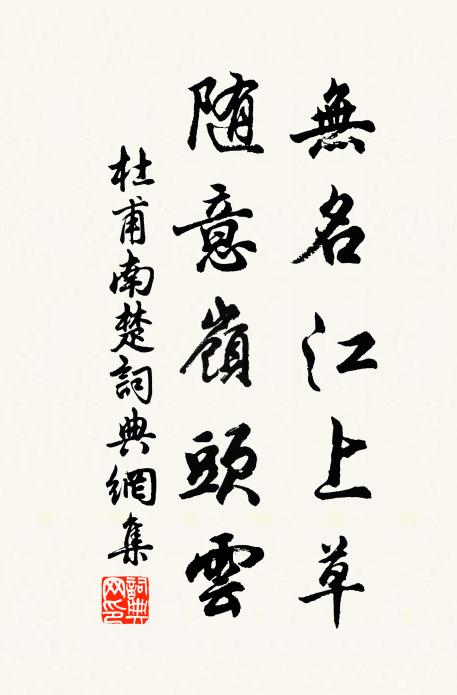 無名江上草
随意嶺頭雲
杜甫南楚詞典網集
詞典網印